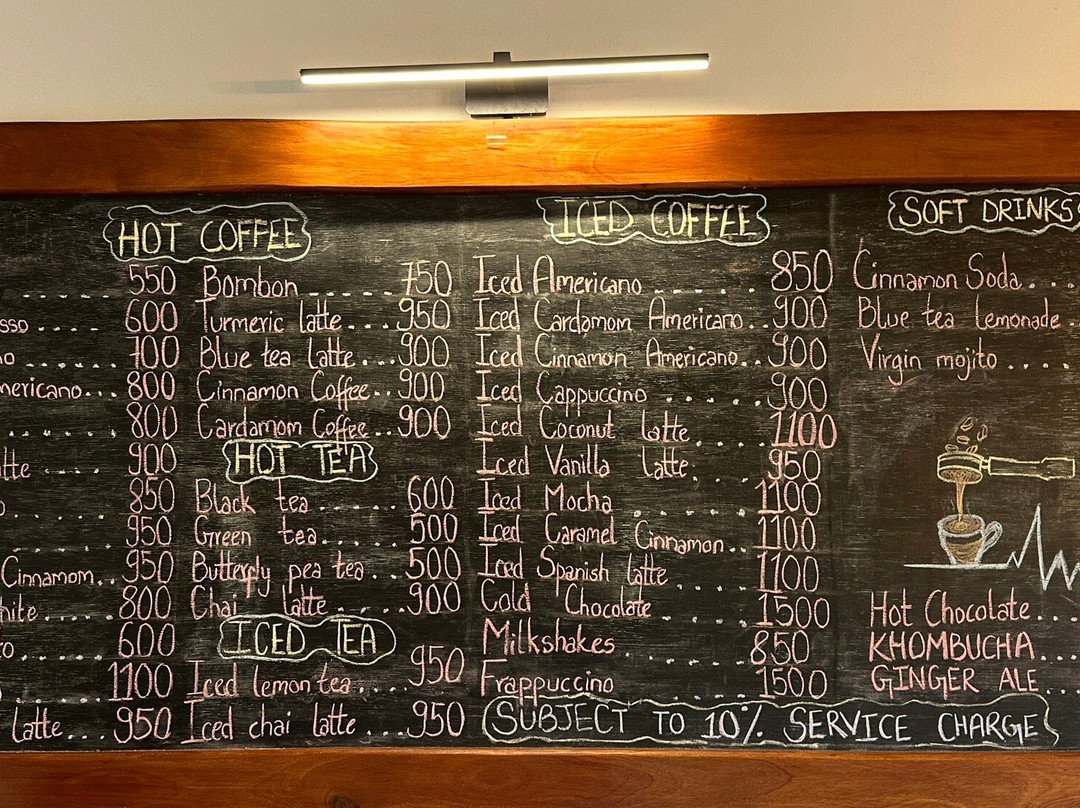 HOT COFFEE
550
sso .... 600
no 700
mericano... 800
800
tte .... 900
850
950
Cinnamom.. 950
hite .... 800
co 600
1100
latte... 950
Bombon ... 750
Turmeric latte... 950
Blue tea latte... 900
Cinnamon Coffee.. 900
Cardamom Coffee.. 900
HOT TEA
Black tea ...... 600
Green tea...... 500
Butterfly pea tea.. 500
Chai latte ...... 900
ICED TEA
Iced lemon tea.... 950
Iced chai latte ... 950
ICED COFFEE
Iced Americano .... 850
Iced Cardamom Americano.. 900
Iced Cinnamon Americano.. 900
Iced Cappuccino ...... 900
Iced Coconut latte..... 1100
Iced Vanilla latte..... 950
Iced Mocha ....... 1100
Iced Caramel Cinnamon.. 1100
Iced Spanish latte ..... 1100
Cold Chocolate ..... 1500
Milkshakes ...... 850
Frappuccino ...... 1500
SUBJECT TO 10% SERVICE CHARGE
SOFT DRINKS
Cinnamon Soda...
Blue tea lemonade.
Virgin mojito ....
Hot Chocolate...
KHOMBUCHA...
GINGER ALE...